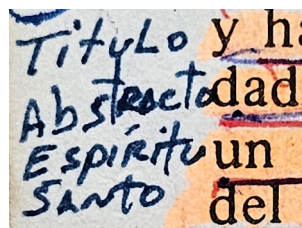 Titulo y ha
Abstracto dad
Espíritu un
Santo del